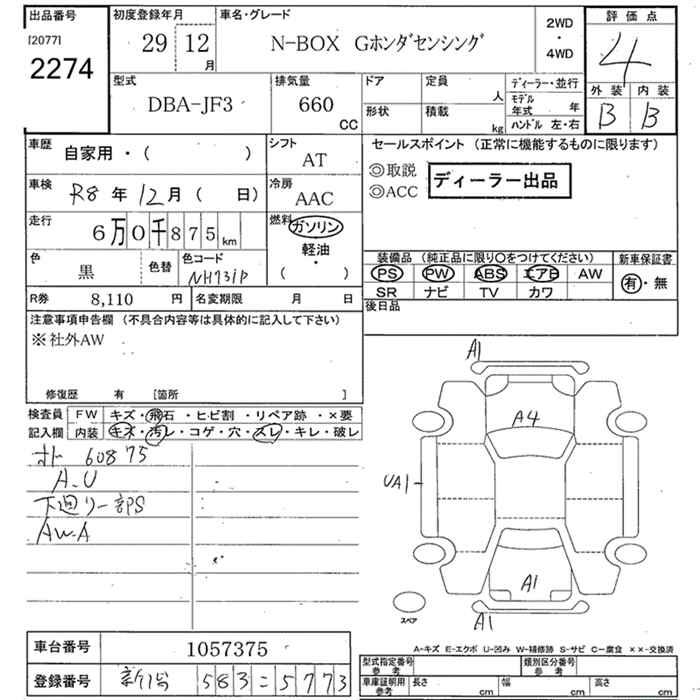 出品番号
[2077]
2274
初度登録年月
29 12 月
車名・グレード
N-BOX Gホンダセンシング
2WD
・
4WD
評価点
4
外装 内装
B B
型式
DBA-JF3
排気量
660
CC
ドア
形状
定員
人
積載
kg
ディーラー・並行
モデル
年式 年
ハンドル 左・右
車歴
自家用・( )
シフト
AT
セールスポイント (正常に機能するものに限ります)
◎取説
◎ACC
ディーラー出品
車検
R8 年 12月 ( 日)
冷房
AAC
走行
6万0千875 km
燃料
ガソリン
軽油・
( )
色
黒
色替
色コード
NH731P
装備品 (純正品に限り○をつけてください)
PS PW ABS エアB AW
SR ナビ TV カワ
新車保証書
有・無
R券 8,110 円
名変期限 月 日
後日品
注意事項申告欄 (不具合内容等は具体的に記入して下さい)
※社外AW
修復歴 有 [箇所 ]
検査員
記入欄
FW キズ・飛石・ヒビ割・リペア跡・×要
内装 キズ・汚レ・コゲ・穴・スレ・キレ・破レ
オト 60875
A.U
下廻り一部S
AW.A
A1
A4
UA1
A1
A1
スペア
A-キズ E-エクボ U-凹み W-補修跡 S-サビ C-腐食 ××-交換済
車台番号 1057375
登録番号
583 5773
型式指定番号
参考
類別区分番号
参考
車庫証明用
参考
長さ cm 幅 cm 高さ cm